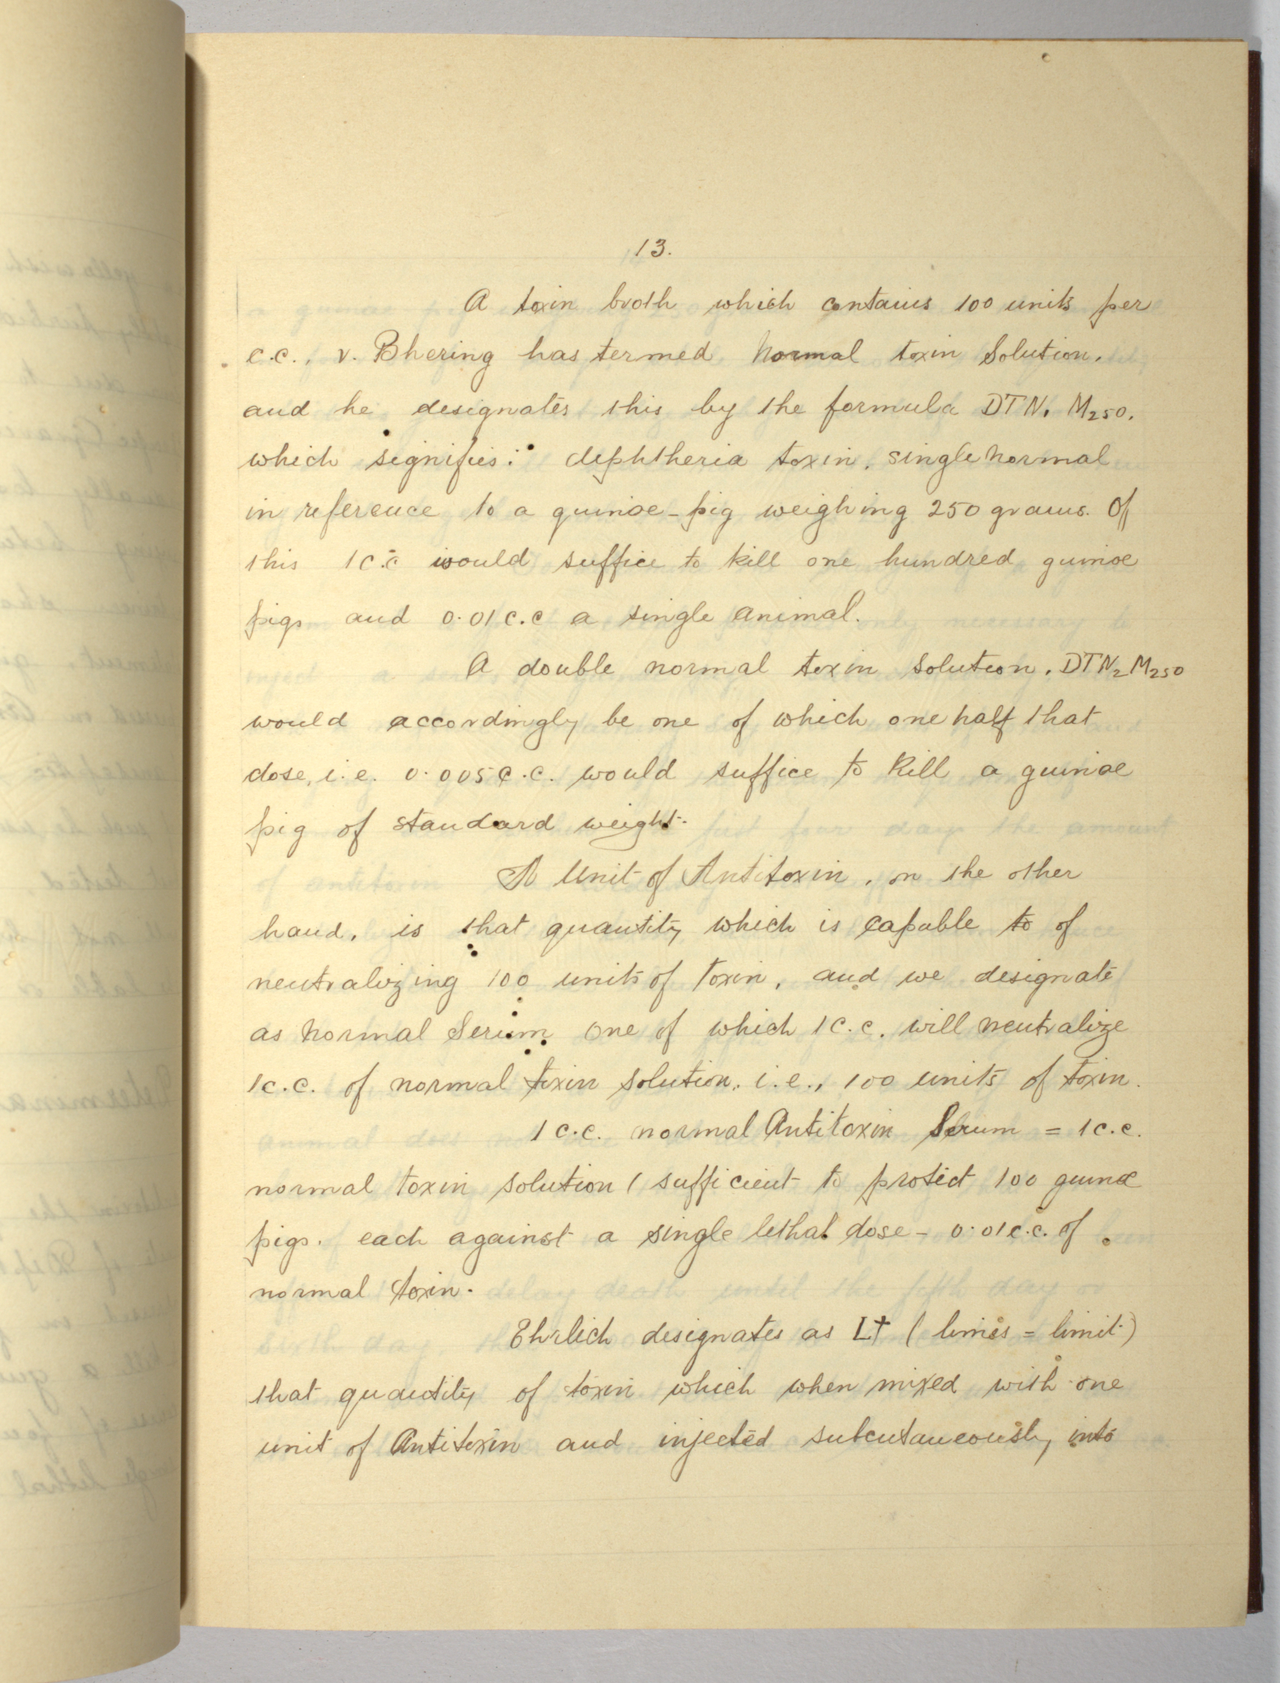 13.
A toxin broth which contains 100 units per
c.c., v. Bhering has termed Normal toxin Solution.
and he designates this by the formula DTN. M₂₅₀.
which signifies: diphtheria toxin, single normal
in reference to a guinae-pig weighing 250 grams. Of
this 1 c.c would suffice to kill one hundred guinae
pigs and 0.01 c.c a single animal.
A double normal toxin solution. DTN₂M₂₅₀
would accordingly be one of which one half that
dose, i.e. 0.005 c.c. would suffice to kill a guinae
pig of standard weight.
A Unit of Antitoxin, on the other
hand, is that quantity which is capable to of
neutralizing 100 units of toxin, and we designate
as Normal Serum one of which 1 c.c. will neutralize
1 c.c. of normal toxin solution, i.e., 100 units of toxin.
1 c.c. normal Antitoxin Serum = 1 c.c.
normal toxin solution (sufficient to protect 100 guinae
pigs. each against a single lethal dose - 0.01 c.c. of
normal toxin.
Ehrlich designates as L† (limes = limit)
that quantity of toxin which when mixed with one
unit of Antitoxin and injected subcutaneously into